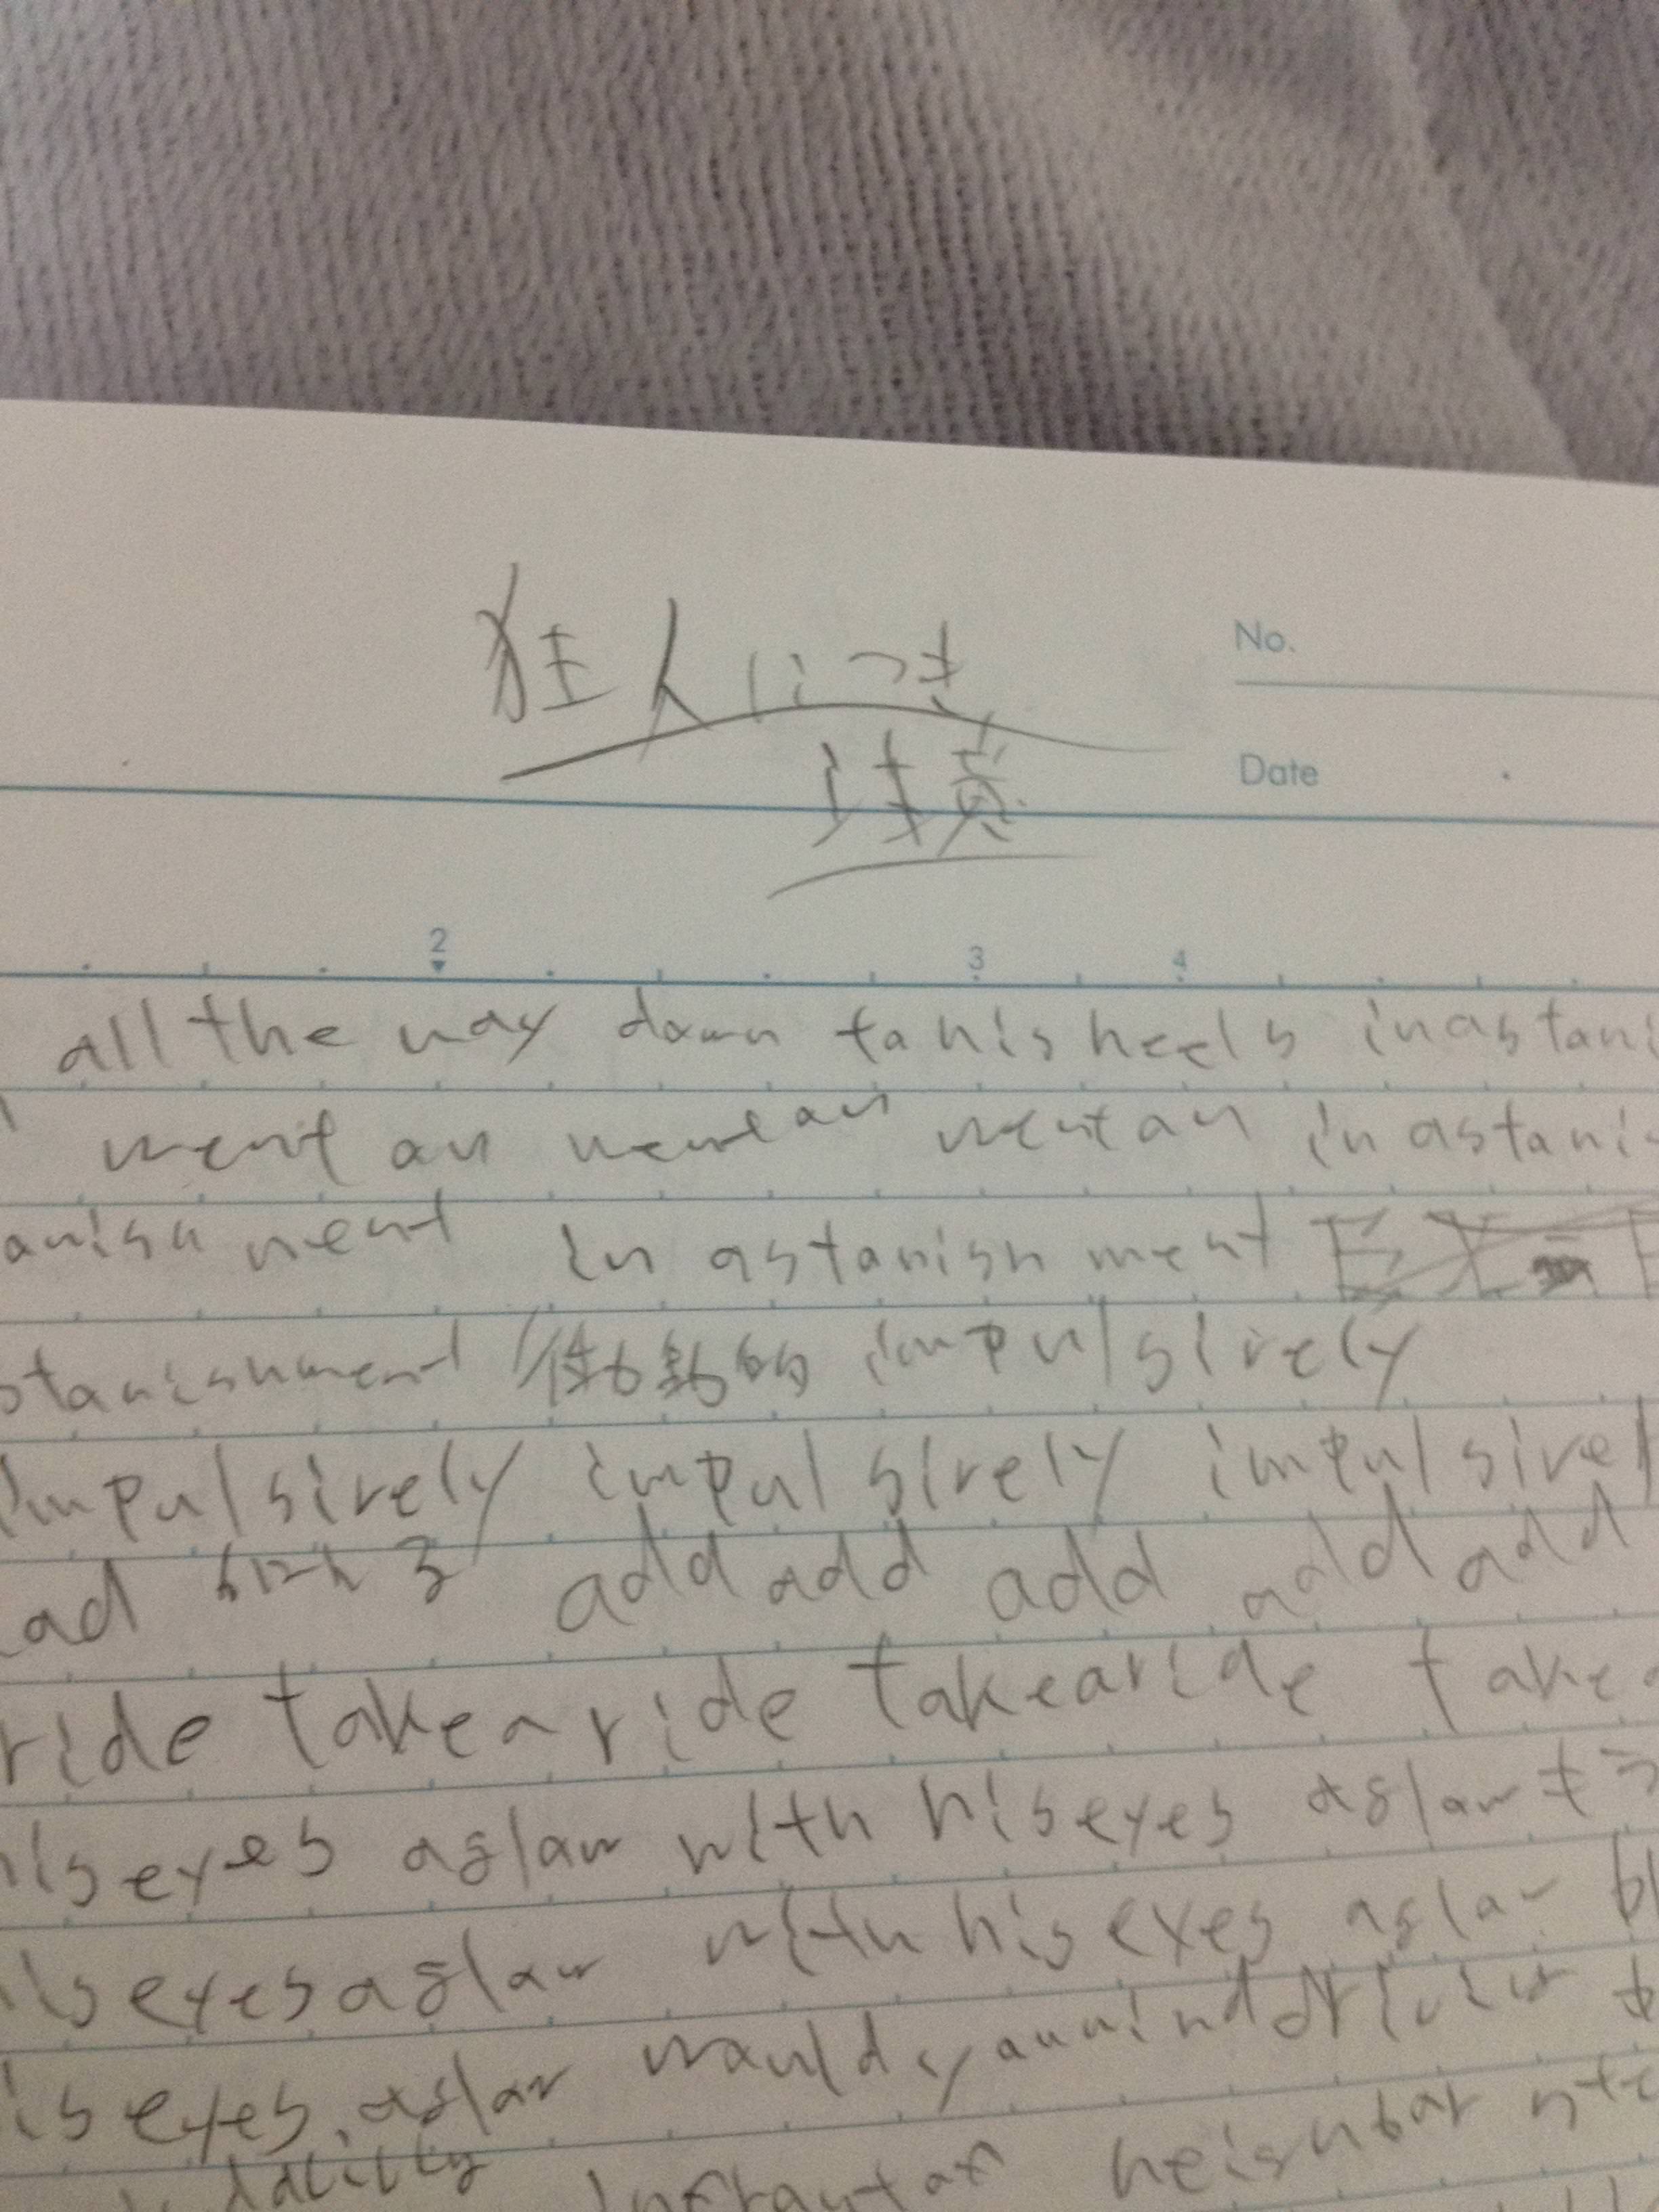 狂人につき
注意
No.
Date
2 3 4
all the way down to his heels in astoni
went on went on went on in astoni
onish ment in astonish ment
stonishment 衝動的 impulsively
impulsively impulsively impulsively
ad add add add add add
ride take a ride take a ride take a
his eyes aglow with his eyes aglow
his eyes aglow with his eyes aglow
is eyes aglow would you mind
neighbor